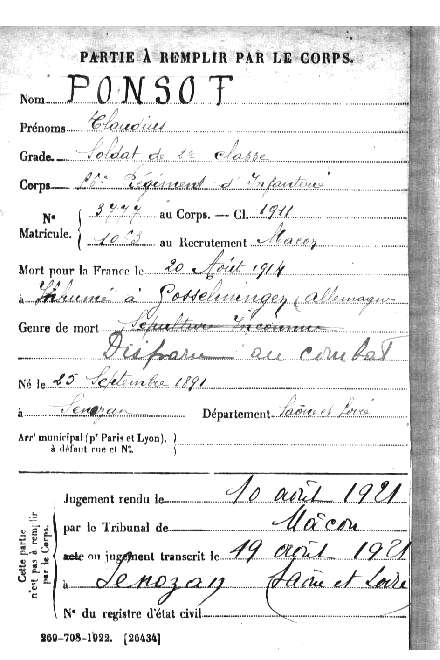 PARTIE À REMPLIR PAR LE CORPS.
Nom PONSOT
Prénoms Claudius
Grade Soldat de 2e classe
Corps Régiment d'Infanterie
N° Matricule. 3777 au Corps. — Cl. 1911
1053 au Recrutement Macon
Mort pour la France le 20 Août 1914
à Inhumé à Gosselmingen (allemagne
Genre de mort Sépulture Inconnue
Disparu au combat
Né le 25 Septembre 1891
à Senozan Département Saône et Loire
Arrt municipal (pr Paris et Lyon), à défaut rue et N°.
Cette partie n'est pas à remplir par le Corps.
Jugement rendu le 10 août 1921
par le Tribunal de Mâcon
acte ou jugement transcrit le 19 août 1921
à Senozan Saône et Loire
N° du registre d'état civil
269-708-1922. [26434]